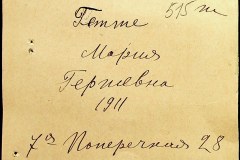 Гетте 515 т
Мария
Гержевна
1911
7ая Поперечная 28